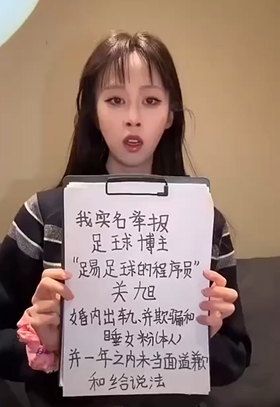 我实名举报
足球博主
“踢足球的程序员”
关旭
婚内出轨、并欺骗和
睡女粉(本人)
并一年之内未当面道歉
和给说法